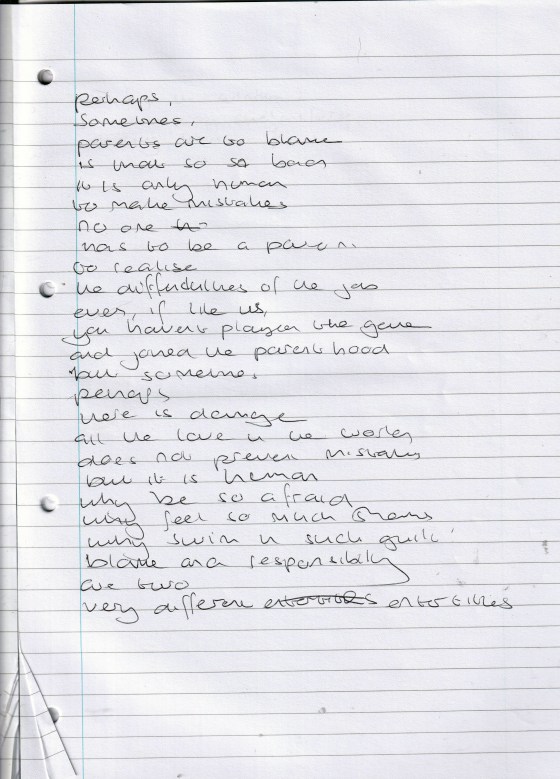 perhaps,
sometimes,
parents are to blame
is that so so bad
it is only human
to make mistakes
no one
has to be a parent
to realise
the difficulties of the job
even, if like us,
you haven't played the game
and joined the parenthood
but sometimes
perhaps
there is damage
all the love in the world
does not prevent mistakes
but it is human
why be so afraid
why feel so much shame
why swim in such guilt
blame and responsibility
are two
very different entertities